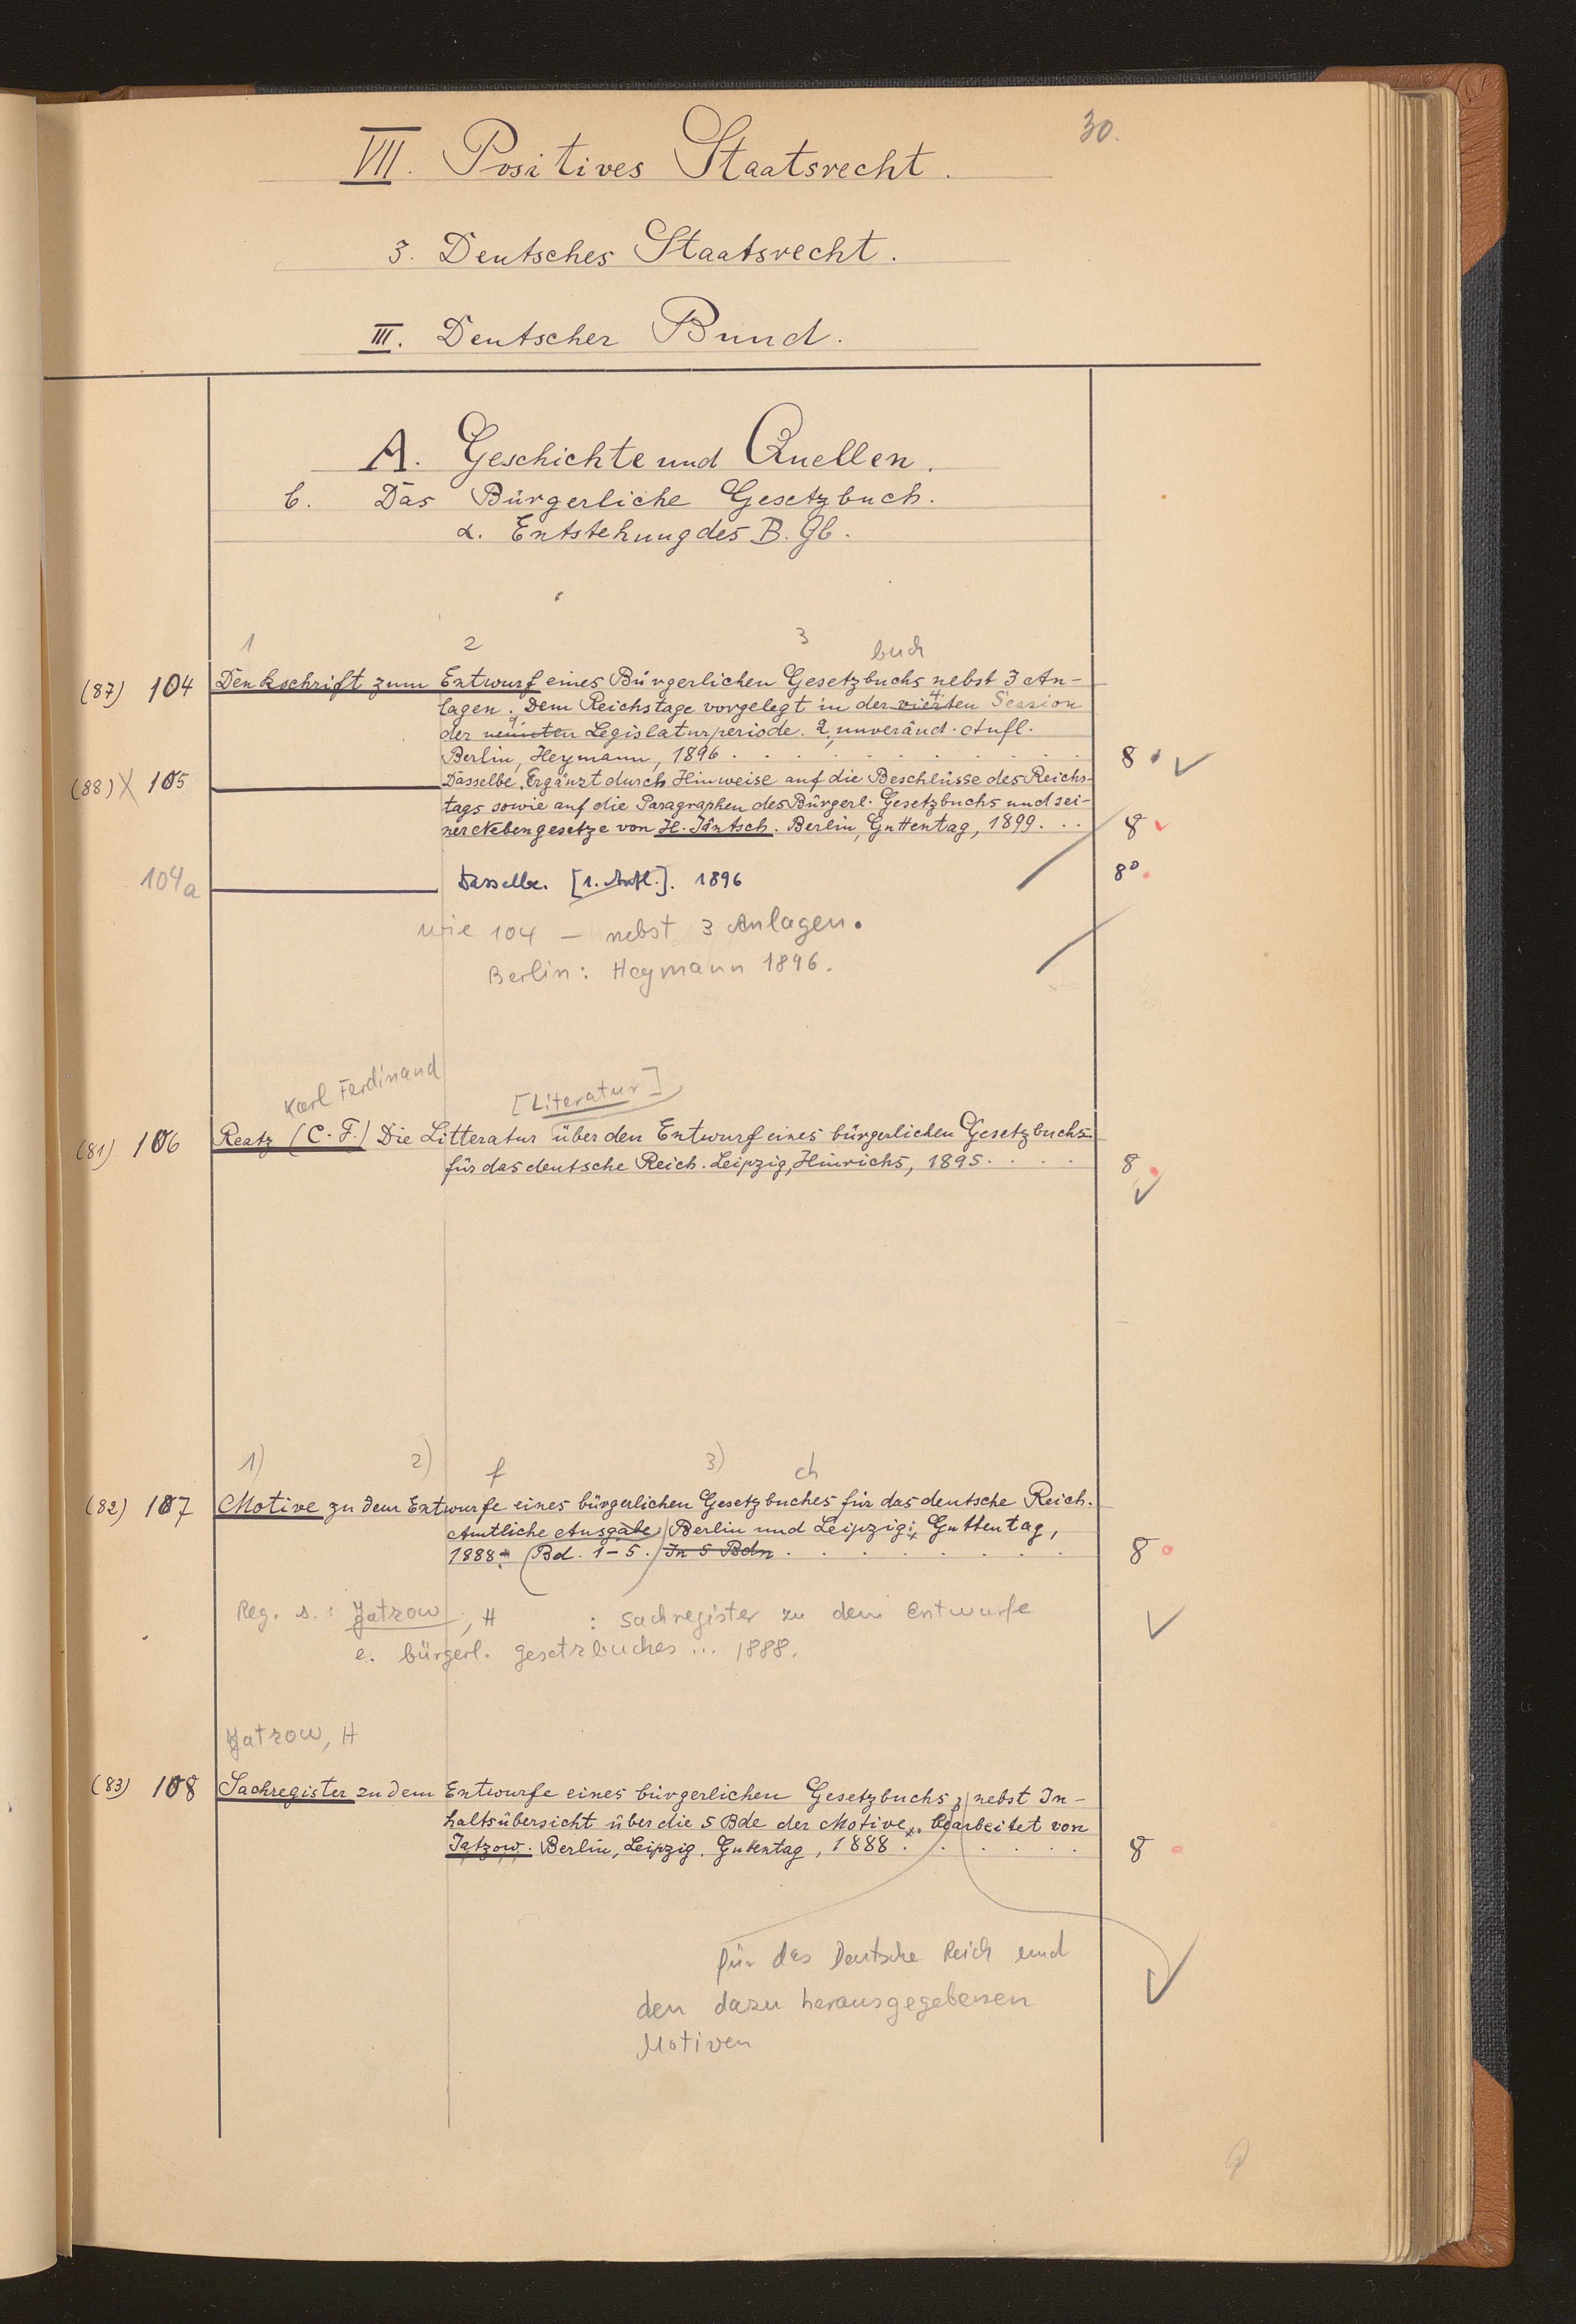 30.
VII. Positives Staatsrecht.
3. Deutsches Staatsrecht.
III. Deutscher Bund.
A. Geschichte und Quellen.
b. Das Bürgerliche Gesetzbuch.
α. Entstehung des B. Gb.
1 2 3 buch
(87) 104 Denkschrift zum Entwurf eines Bürgerlichen Gesetzbuchs nebst 3 An-
lagen. Dem Reichstage vorgelegt in der vierten 4. Session
der neunten 9. Legislaturperiode. 2, unveränd. Aufl.
Berlin, Heymann, 1896 . . . . . . . . 8
(88) X 105 ——— Dasselbe. Ergänzt durch Hinweise auf die Beschlüsse des Reichs-
tags sowie auf die Paragraphen des Bürgerl. Gesetzbuchs und sei-
ner Nebengesetze von H. Jäntsch. Berlin, Guttentag, 1899. . . 8
104a ——— Dasselbe. [1. Aufl.]. 1896 8°
wie 104 — nebst 3 Anlagen.
Berlin: Heymann 1896.
Karl Ferdinand [Literatur]
(81) 106 Reatz (C. F.) Die Litteratur über den Entwurf eines bürgerlichen Gesetzbuchs
für das deutsche Reich. Leipzig, Hinrichs, 1895. . . . . 8
1) 2) f 3) ch
(82) 107 Motive zu dem Entwurfe eines bürgerlichen Gesetzbuches für das deutsche Reich.
Amtliche Ausgabe. Berlin und Leipzig: Guttentag,
1888. (Bd. 1-5.) In 5 Bdn . . . . . . . . 8
Reg. s.: Jatzow, H : Sachregister zu dem Entwurfe
e. bürgerl. Gesetzbuches ... 1888.
Jatzow, H
(83) 108 Sachregister zu dem Entwurfe eines bürgerlichen Gesetzbuchs, nebst In-
haltsübersicht über die 5 Bde der Motive, bearbeitet von
Jatzow. Berlin, Leipzig. Guttentag, 1888 . . . . . . 8
für das Deutsche Reich und
den dazu herausgegebenen
Motiven